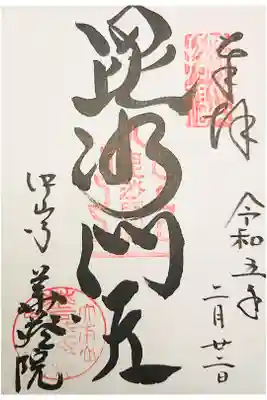 奉拝
令和五年
二月廿二日
毘沙門天
中山寺
華蔵院